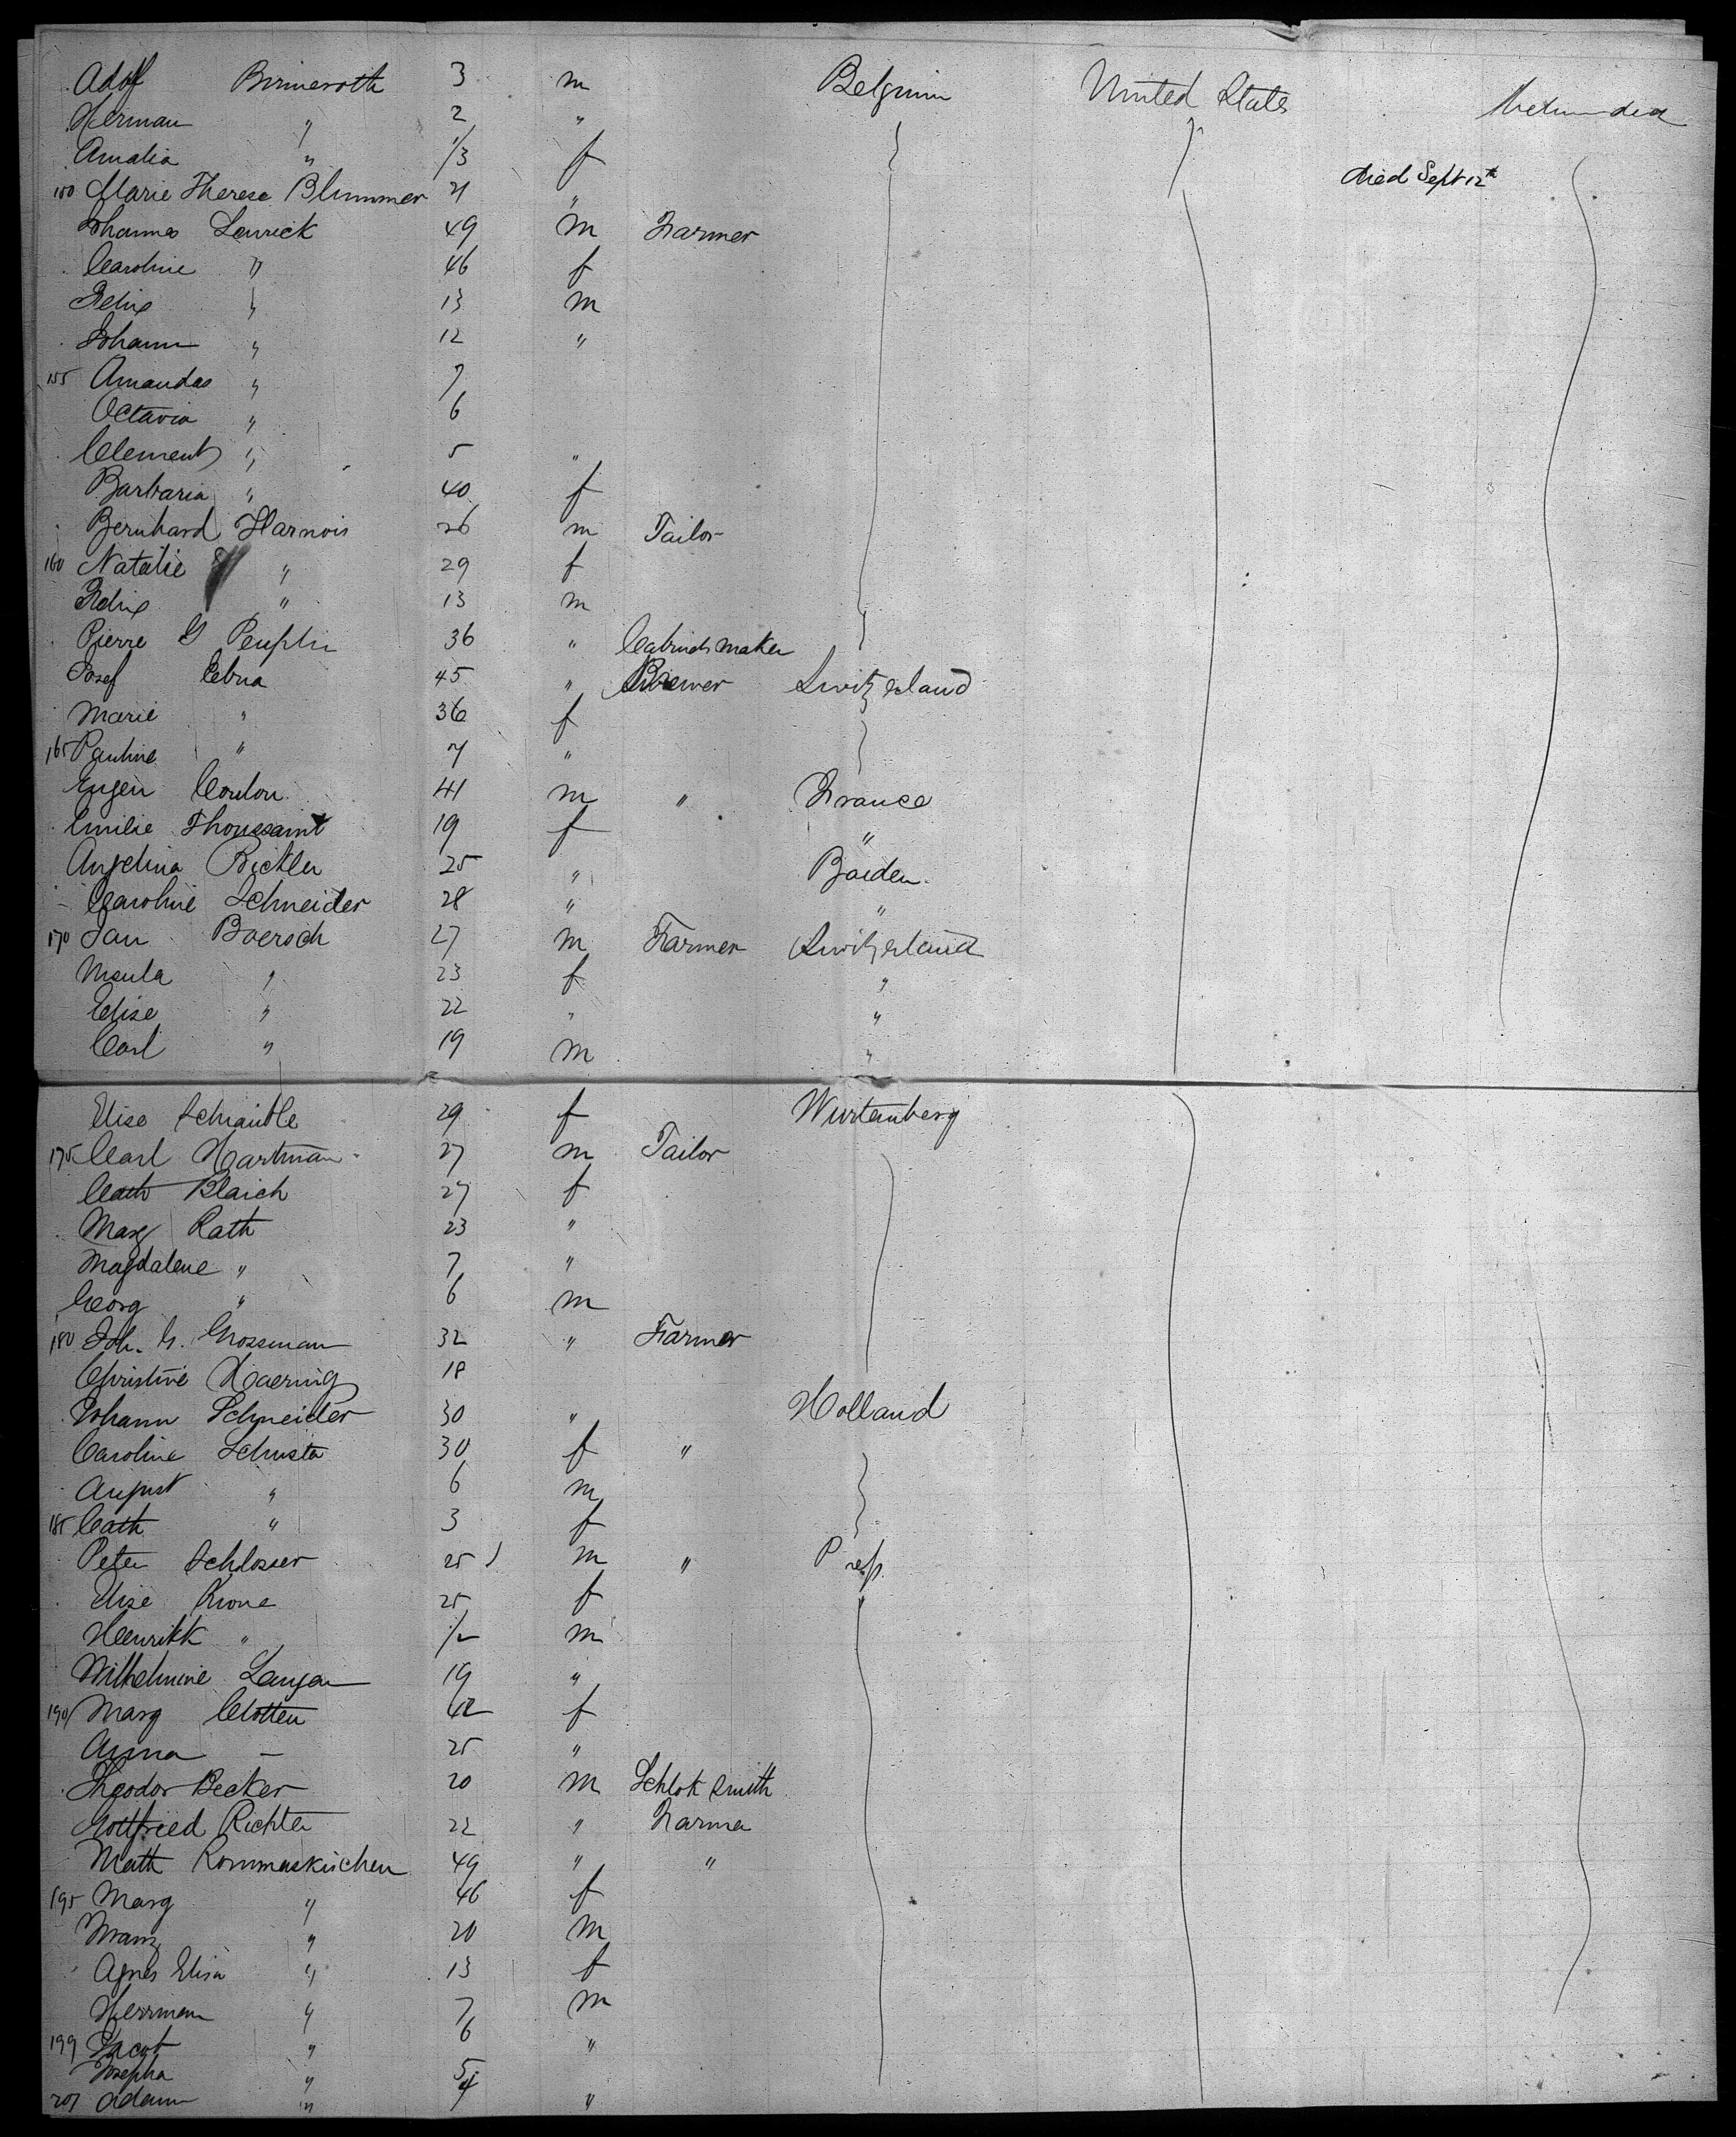 Adolf Birmeroth 3 m Belgium United States
Herman " 2 "
Amalia " 1/3 f died Sept 12th
150 Marie Therese Blummer 21 "
Johannes Lenrick 49 m Farmer
Caroline " 46 f
Felix " 13 m
Johann " 12 "
155 Amandas " 7
Octavia " 6
Clement " 5 "
Barbaria " 40 f
Bernhard Harnois 26 m Tailor
160 Natalie " 29 f
Felix " 13 m
Pierre G 36 " maker
Josef 45 " Brewer Switzerland
Marie " 36 f
165 Pauline " 7 "
Eugen Coulon 41 m " France
Emilie Thoussaint 19 f "
Angelina Bickler 25 " Baiden
Caroline Schneider 28 " "
170 Jan Boersch 27 m Farmer Switzerland
Ursula " 23 f "
Elise " 22 " "
Carl " 19 m "
Elise Schaible 29 f Wurtenberg
175 Carl Hartman 27 m Tailor
Cath Blaich 27 f
Marg Rath 23 "
Magdalene " 7 "
Georg " 6 m
180 Joh. G. Grossman 32 " Farmer
Christine Haering 18
Johann Schneider 30 " Holland
Caroline Schuster 30 f "
August " 6 m
185 Cath " 3 f
Peter Schlosser 25 m "
Elise Krone 25 f
Heinrikk " 1/2 m
Wilhelmine 19 "
190 Marg Clotten 42 f
Anna — 25 "
Theodor Becker 20 m Schlok smith
Gottfried Richter 22 " Farmer
Math Rommerskirchen 49 " "
195 Marg " 46 f
Franz " 20 m
Agnes Elisa " 13 f
Herrman " 7 m
199 Jacob " 6 "
Josepha " 5
201 Adam " 4 "